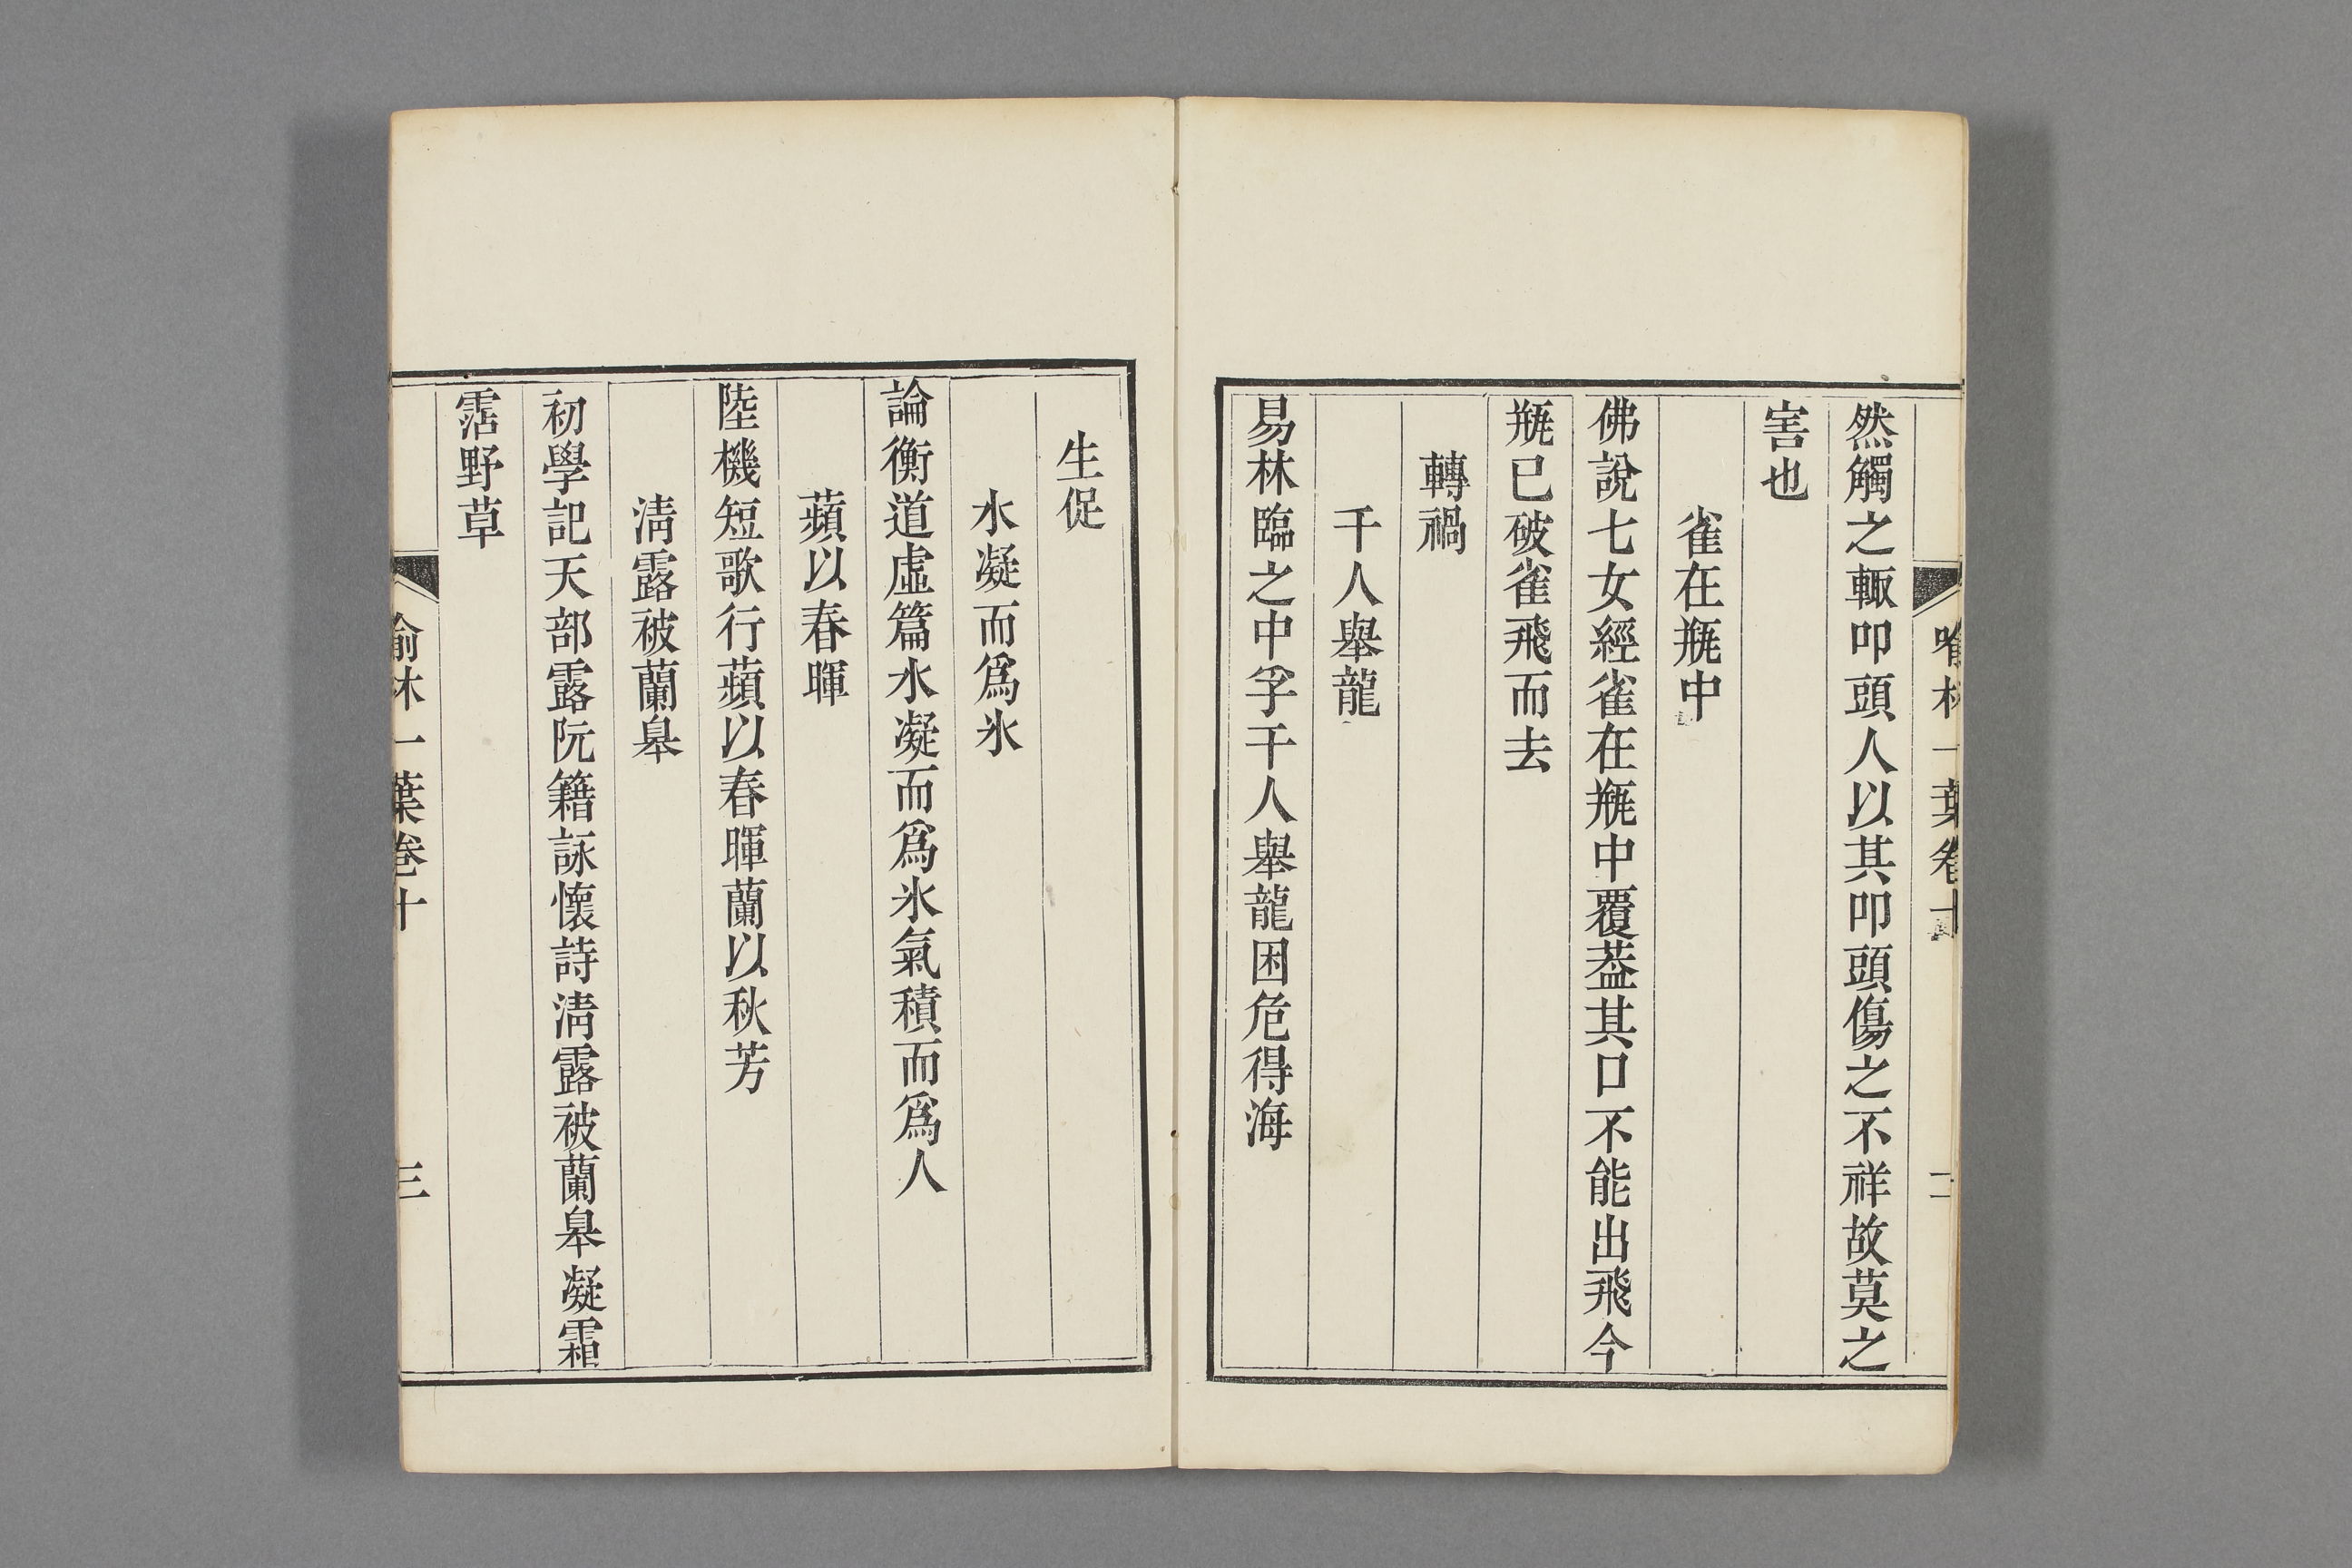 喻林一葉卷十
二
然觸之輙叩頭人以其叩頭傷之不祥故莫之
害也
雀在瓶中
佛說七女經雀在瓶中覆葢其口不能出飛今
瓶已破雀飛而去
轉禍
千人舉龍
易林臨之中孚千人舉龍困危得海
生促
水凝而爲氷
論衡道虛篇水凝而爲氷氣積而爲人
蘋以春暉
陸機短歌行蘋以春暉蘭以秋芳
淸露被蘭皋
初學記天部露阮籍詠懷詩淸露被蘭皋凝霜
霑野草
喻林一葉卷十
三